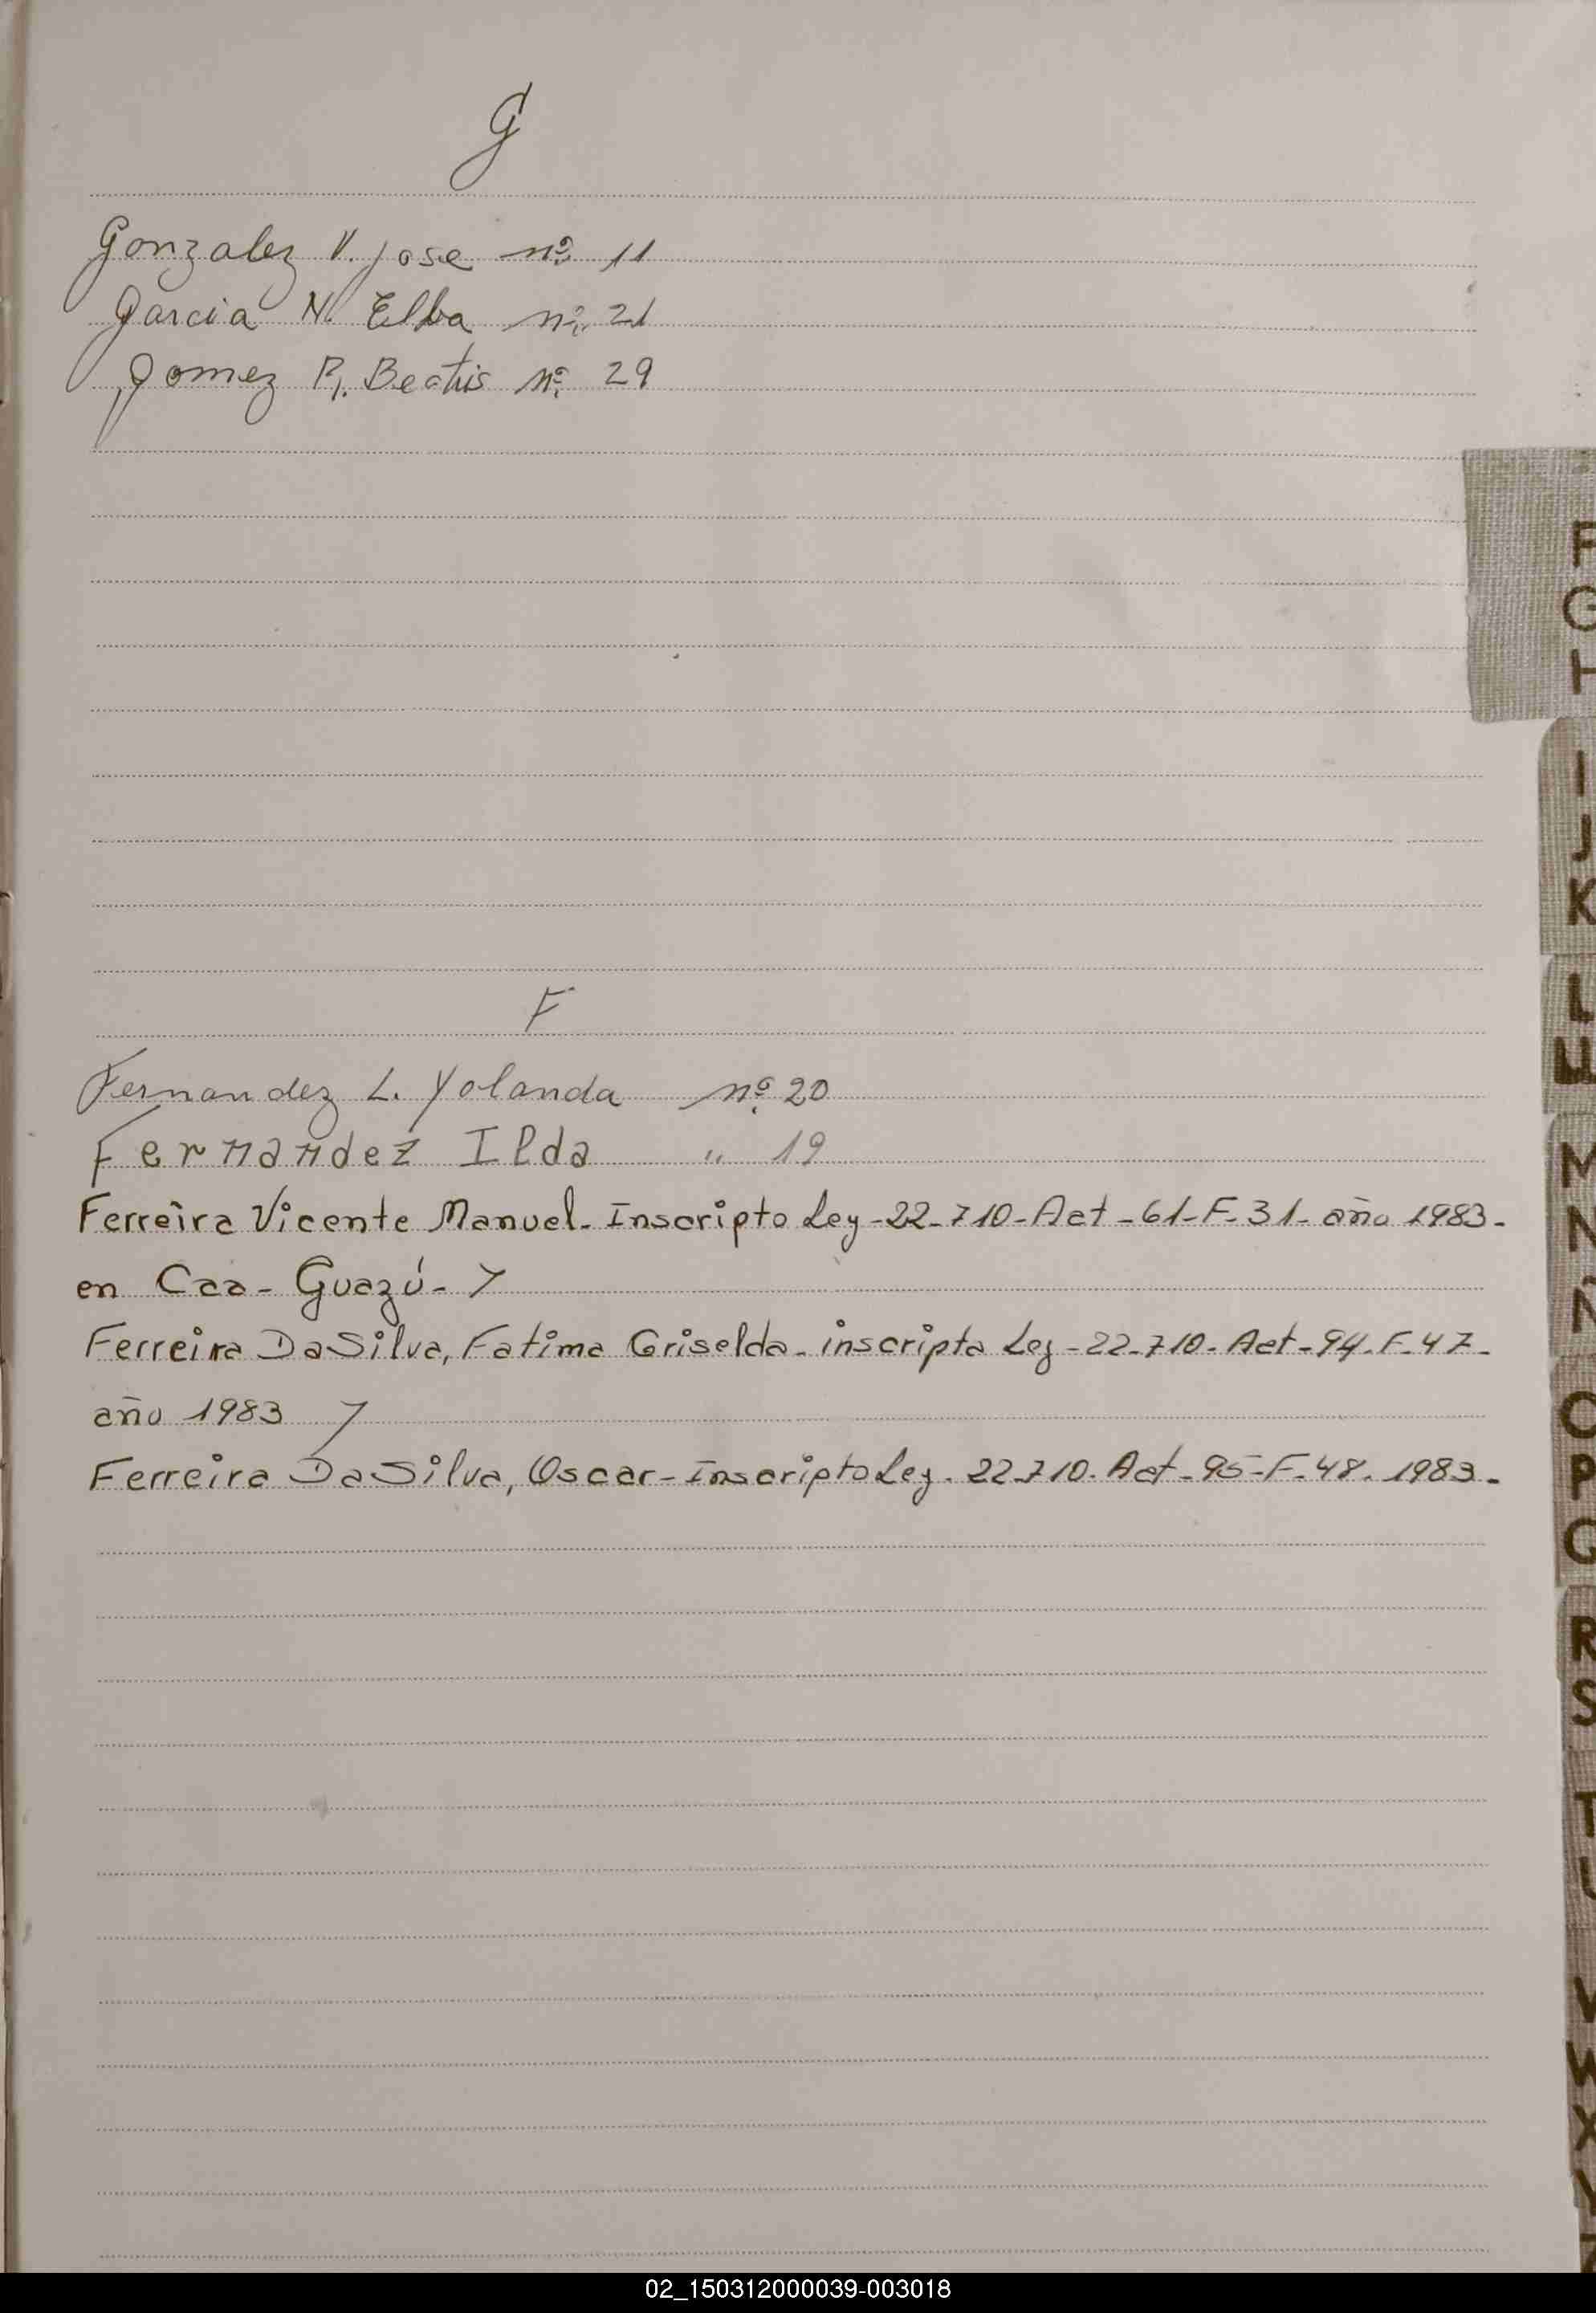 G
Gonzalez V. jose nº 11
Garcia N. Elba nº 21
Gomez R. Beatris nº 29
F
Fernandez L. Yolanda nº 20
Fernandez Ilda " 19
Ferreira Vicente Manuel - Inscripto Ley - 22-710 - Act - 61 - F - 31 - año 1983 -
en Caa - Guazú -
Ferreira DaSilva, Fatima Griselda - inscripta Ley - 22-710 - Act - 94 - F - 47 -
año 1983
Ferreira DaSilva, Oscar - Inscripto Ley . 22-710 . Act - 95 - F - 48 . 1983 -
F
G
I
J
K
L
M
N
Ñ
O
P
R
S
T
V
W
X
02_150312000039-003018